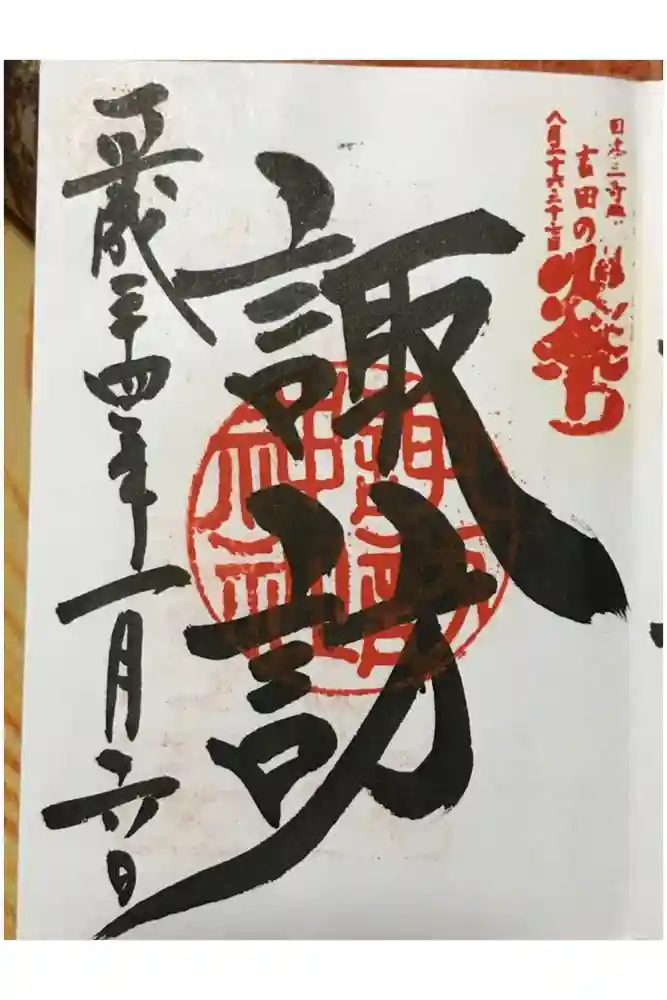 日本三奇祭
吉田の火祭り
八月二十六・二十七日
諏訪
諏訪
神社
平成二十四年一月六日